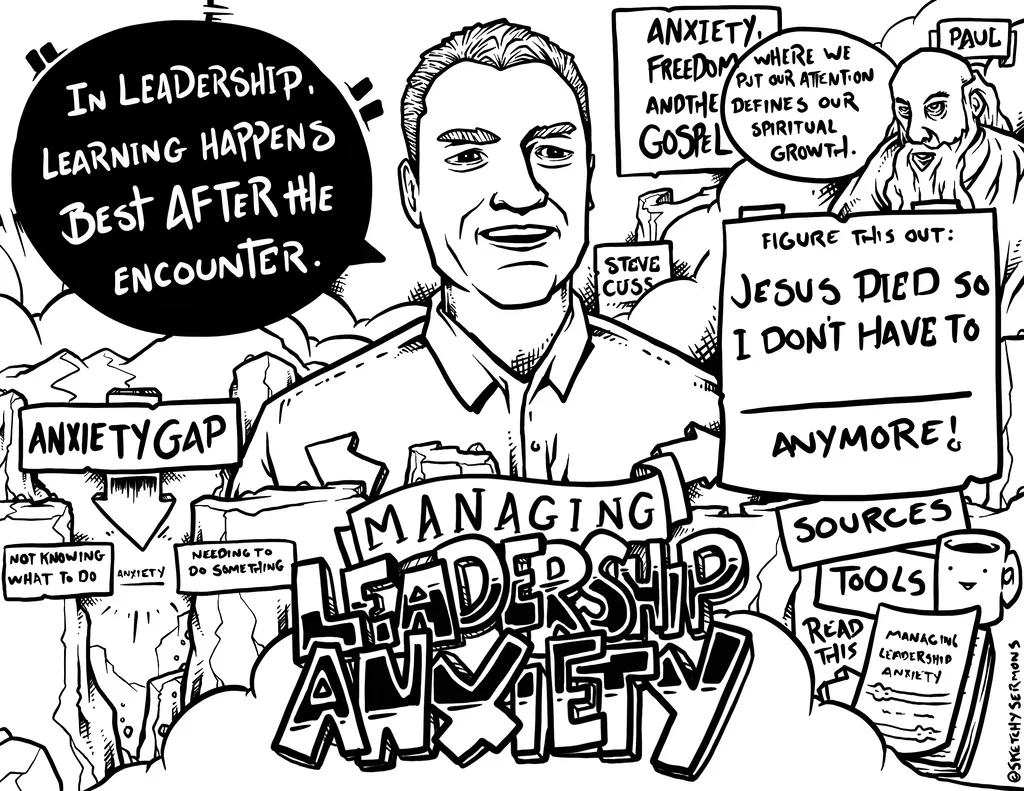 In Leadership,
Learning Happens
Best After the
Encounter.
Anxiety,
Freedom
and the
Gospel
Where we
put our attention
defines our
spiritual
growth.
Paul
Steve
Cuss
Figure this out:
Jesus died so
I don't have to
Anymore!
Anxiety Gap
Not knowing
what to do
Anxiety
Needing to
do something
Managing
Leadership
Anxiety
Sources
Tools
Read
This
Managing
Leadership
Anxiety
@sketchysermons